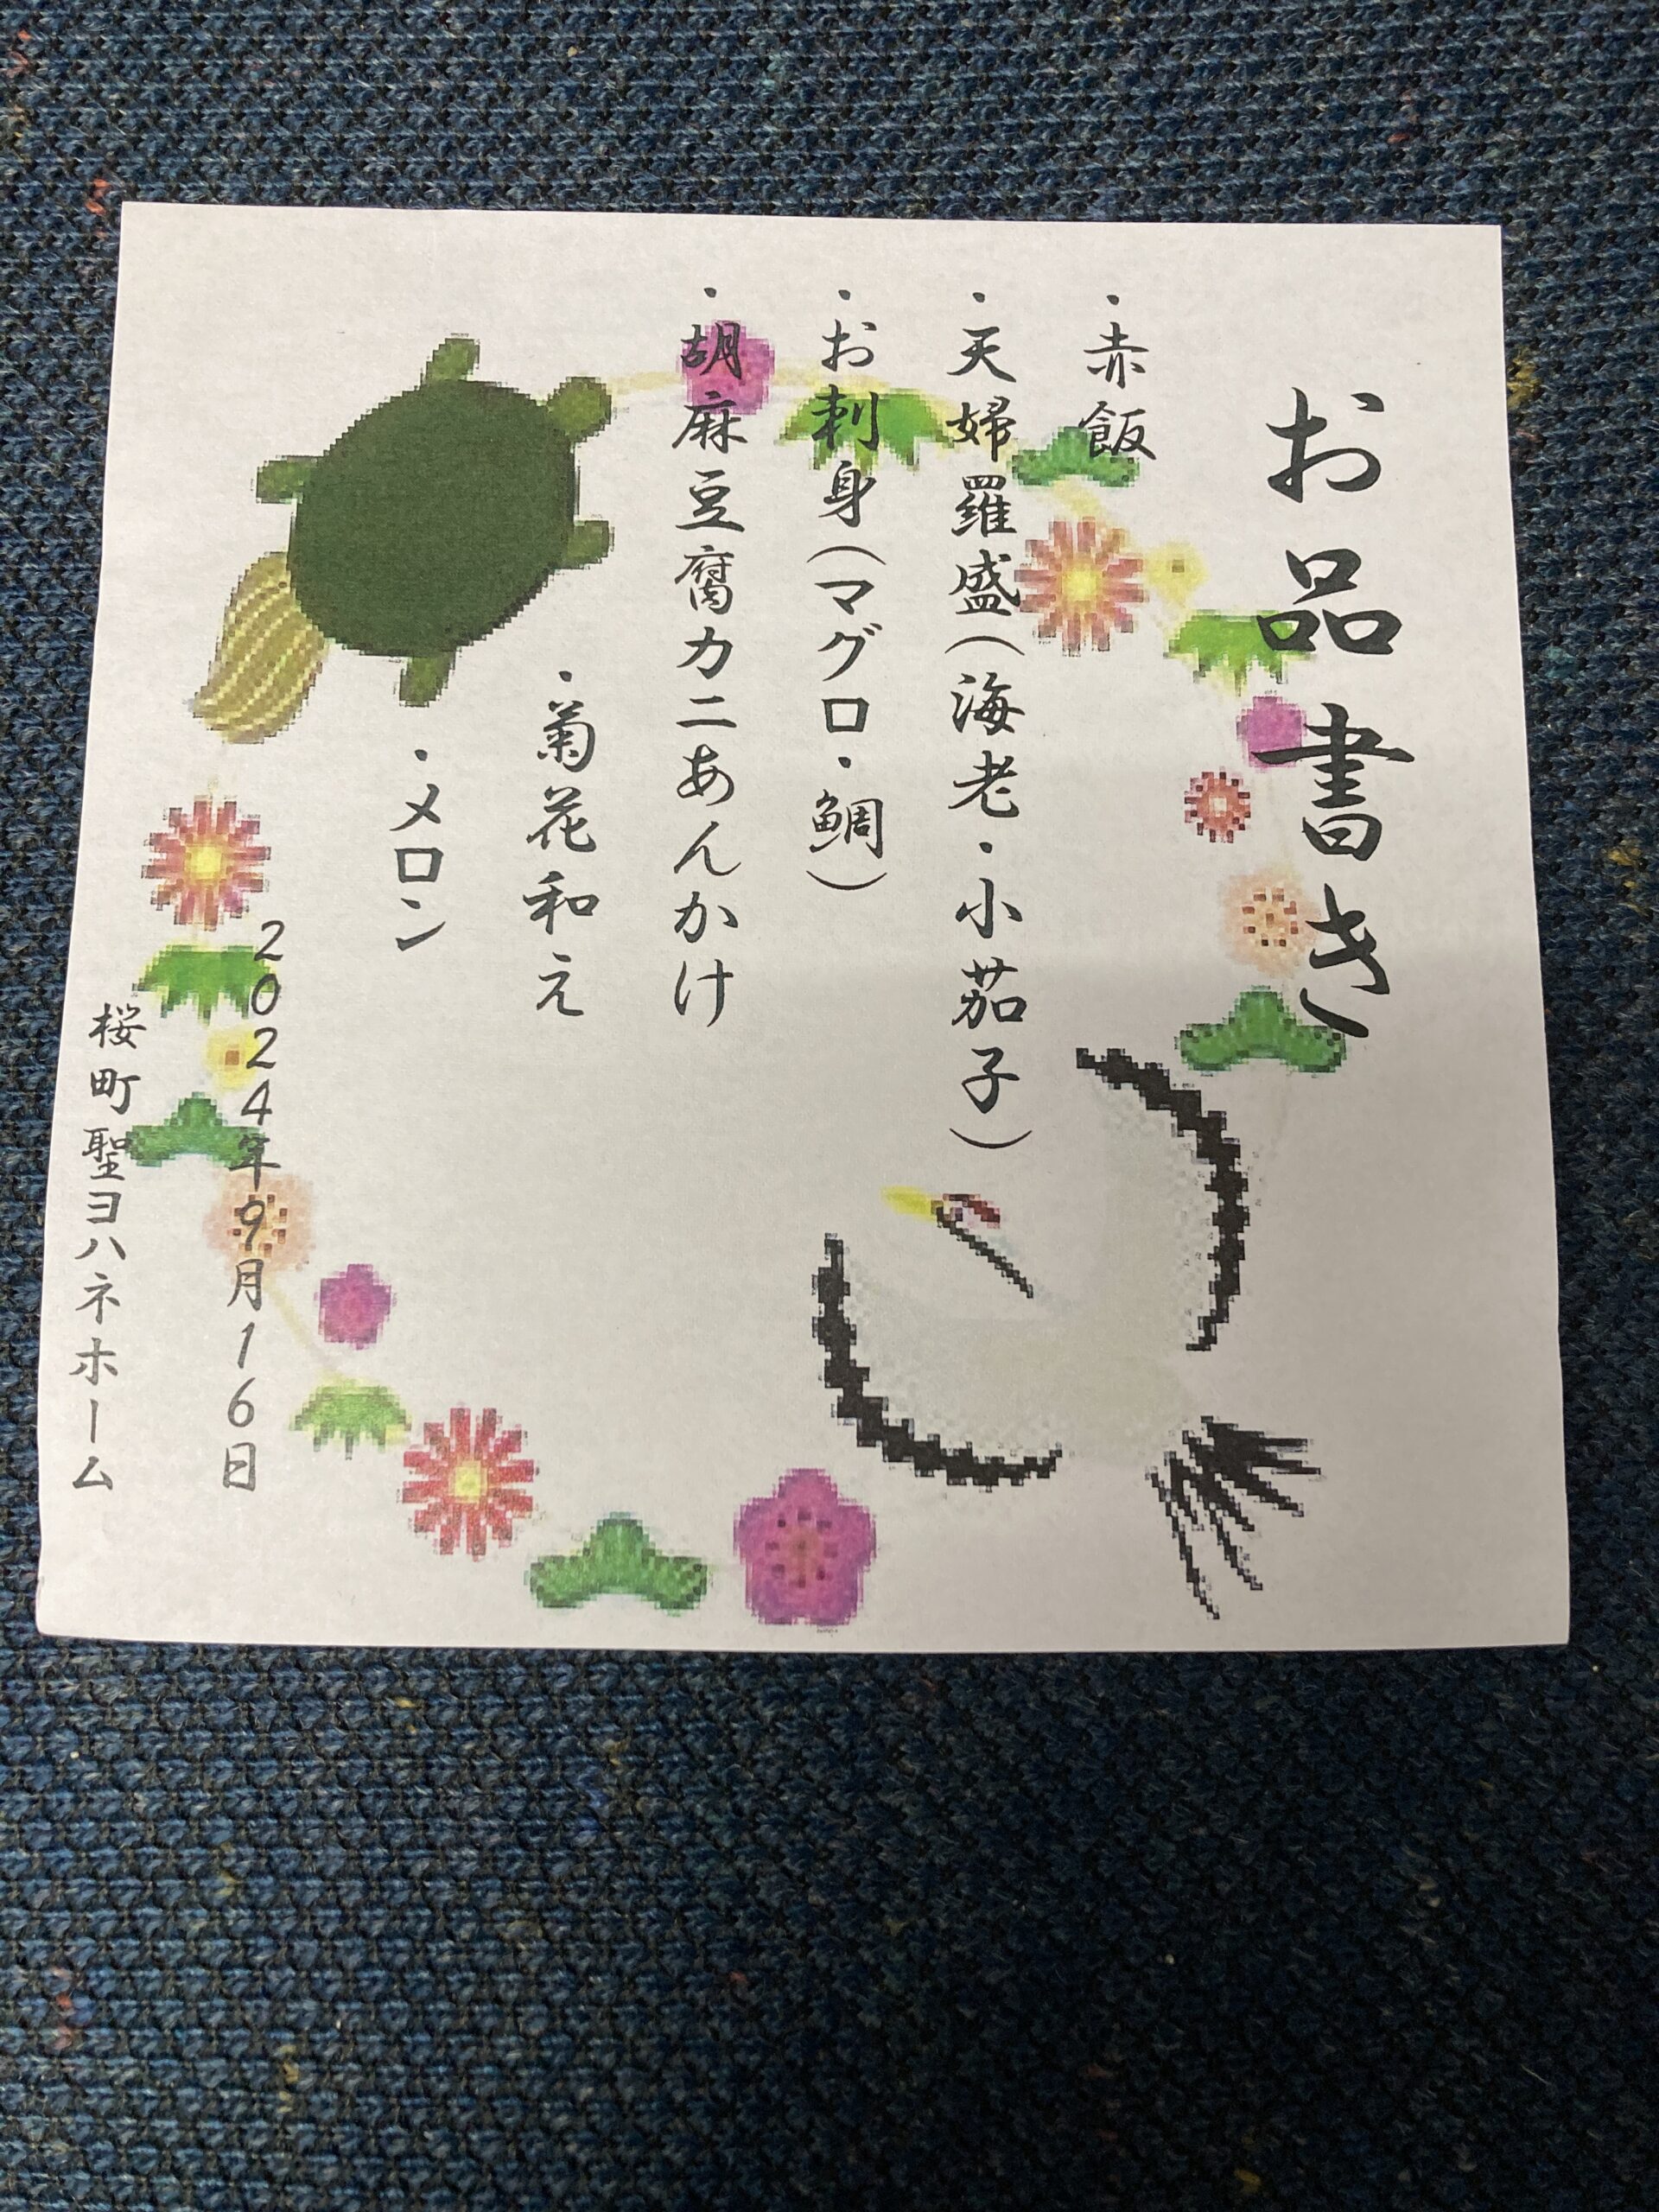 お品書き
・赤飯
・天婦羅盛(海老・小茄子)
・お刺身(マグロ・鯛)
・胡麻豆腐カニあんかけ
・菊花和え
・メロン
2024年9月16日
桜町聖ヨハネホーム